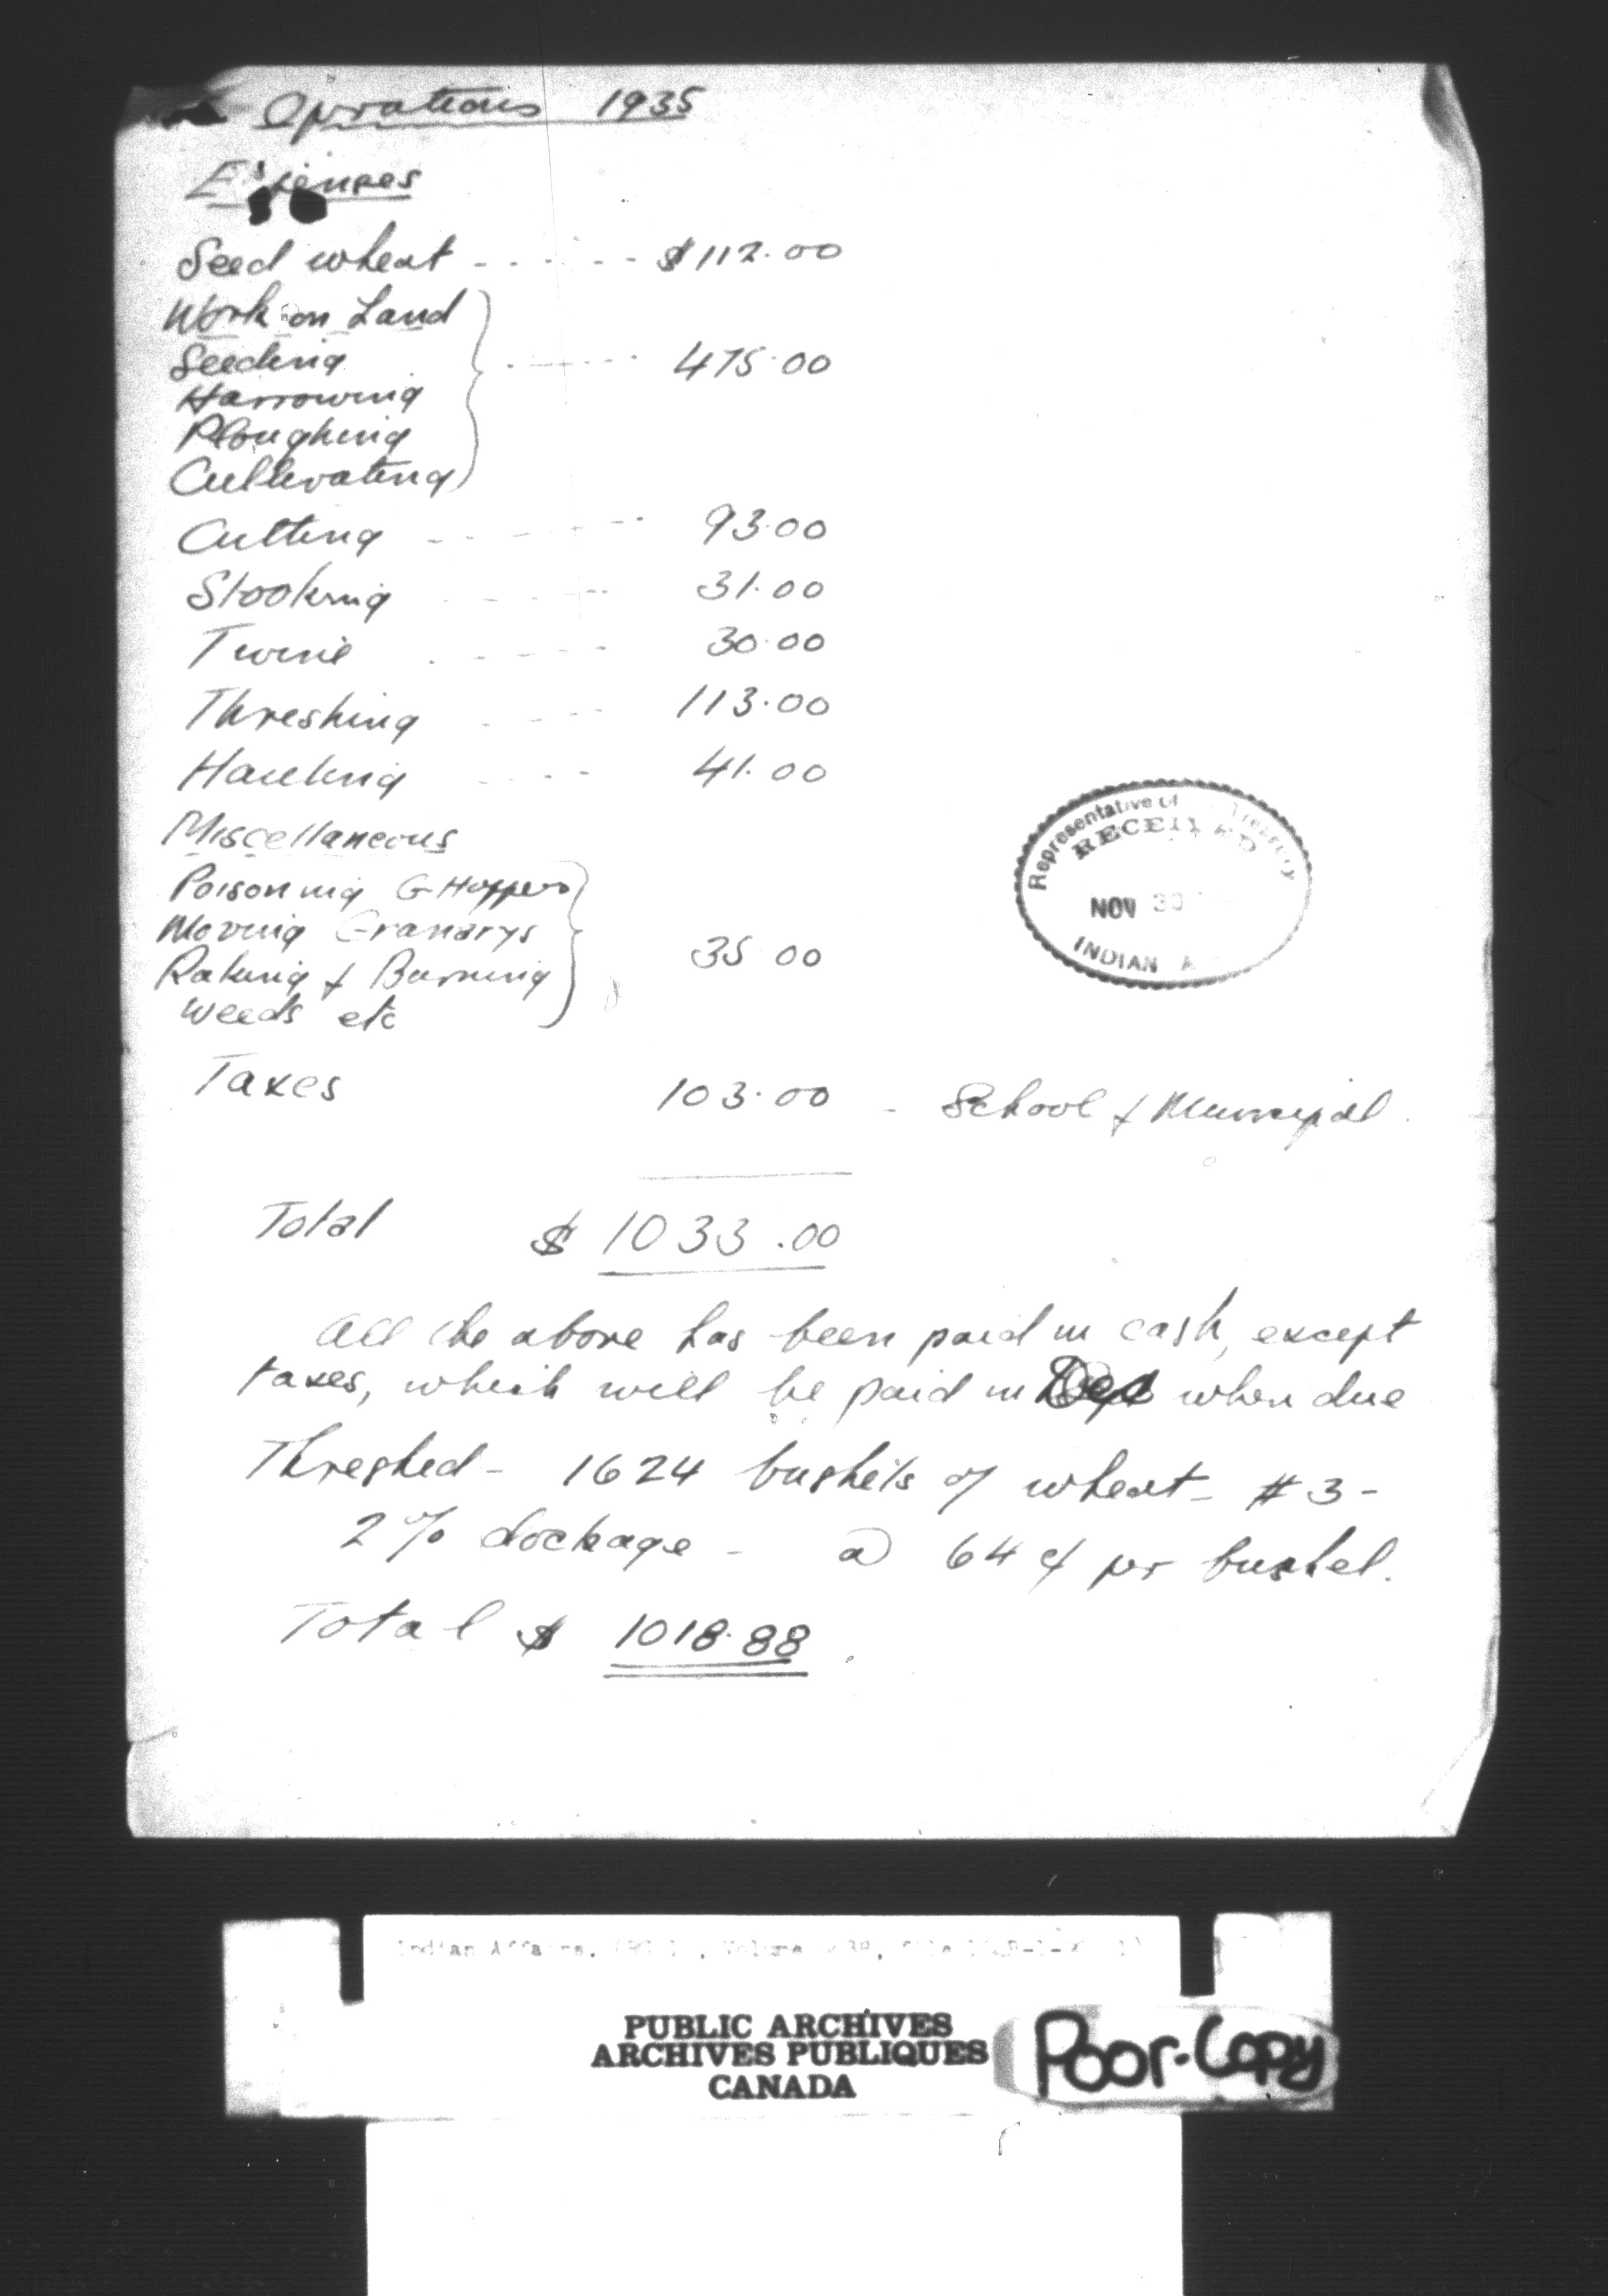 Operations 1935
Expenses
Seed wheat - - - - - - $112.00
Work on Land
Seeding - - - - - - 475.00
Harrowing
Ploughing
Cultivating
Cutting - - - - - - 93.00
Stooking - - - - - 31.00
Twine - - - - - 30.00
Threshing - - - - 113.00
Hauling - - - - 41.00
Miscellaneous
Poisoning G-Hoppers
Moving Granarys
Raking & Burning 35 00
Weeds etc
Taxes 103.00 - School & Municipal
Total $ 1033.00
All the above has been paid in cash, except
taxes, which will be paid in when due
Threshed - 1624 bushels of wheat - #3 -
2% dockage - @ 64 ¢ per bushel.
Total $ 1018.88
Representative of Treasury
RECEIVED
NOV 30
INDIAN
Indian Affairs. Volume
PUBLIC ARCHIVES
ARCHIVES PUBLIQUES
CANADA
Poor-Copy